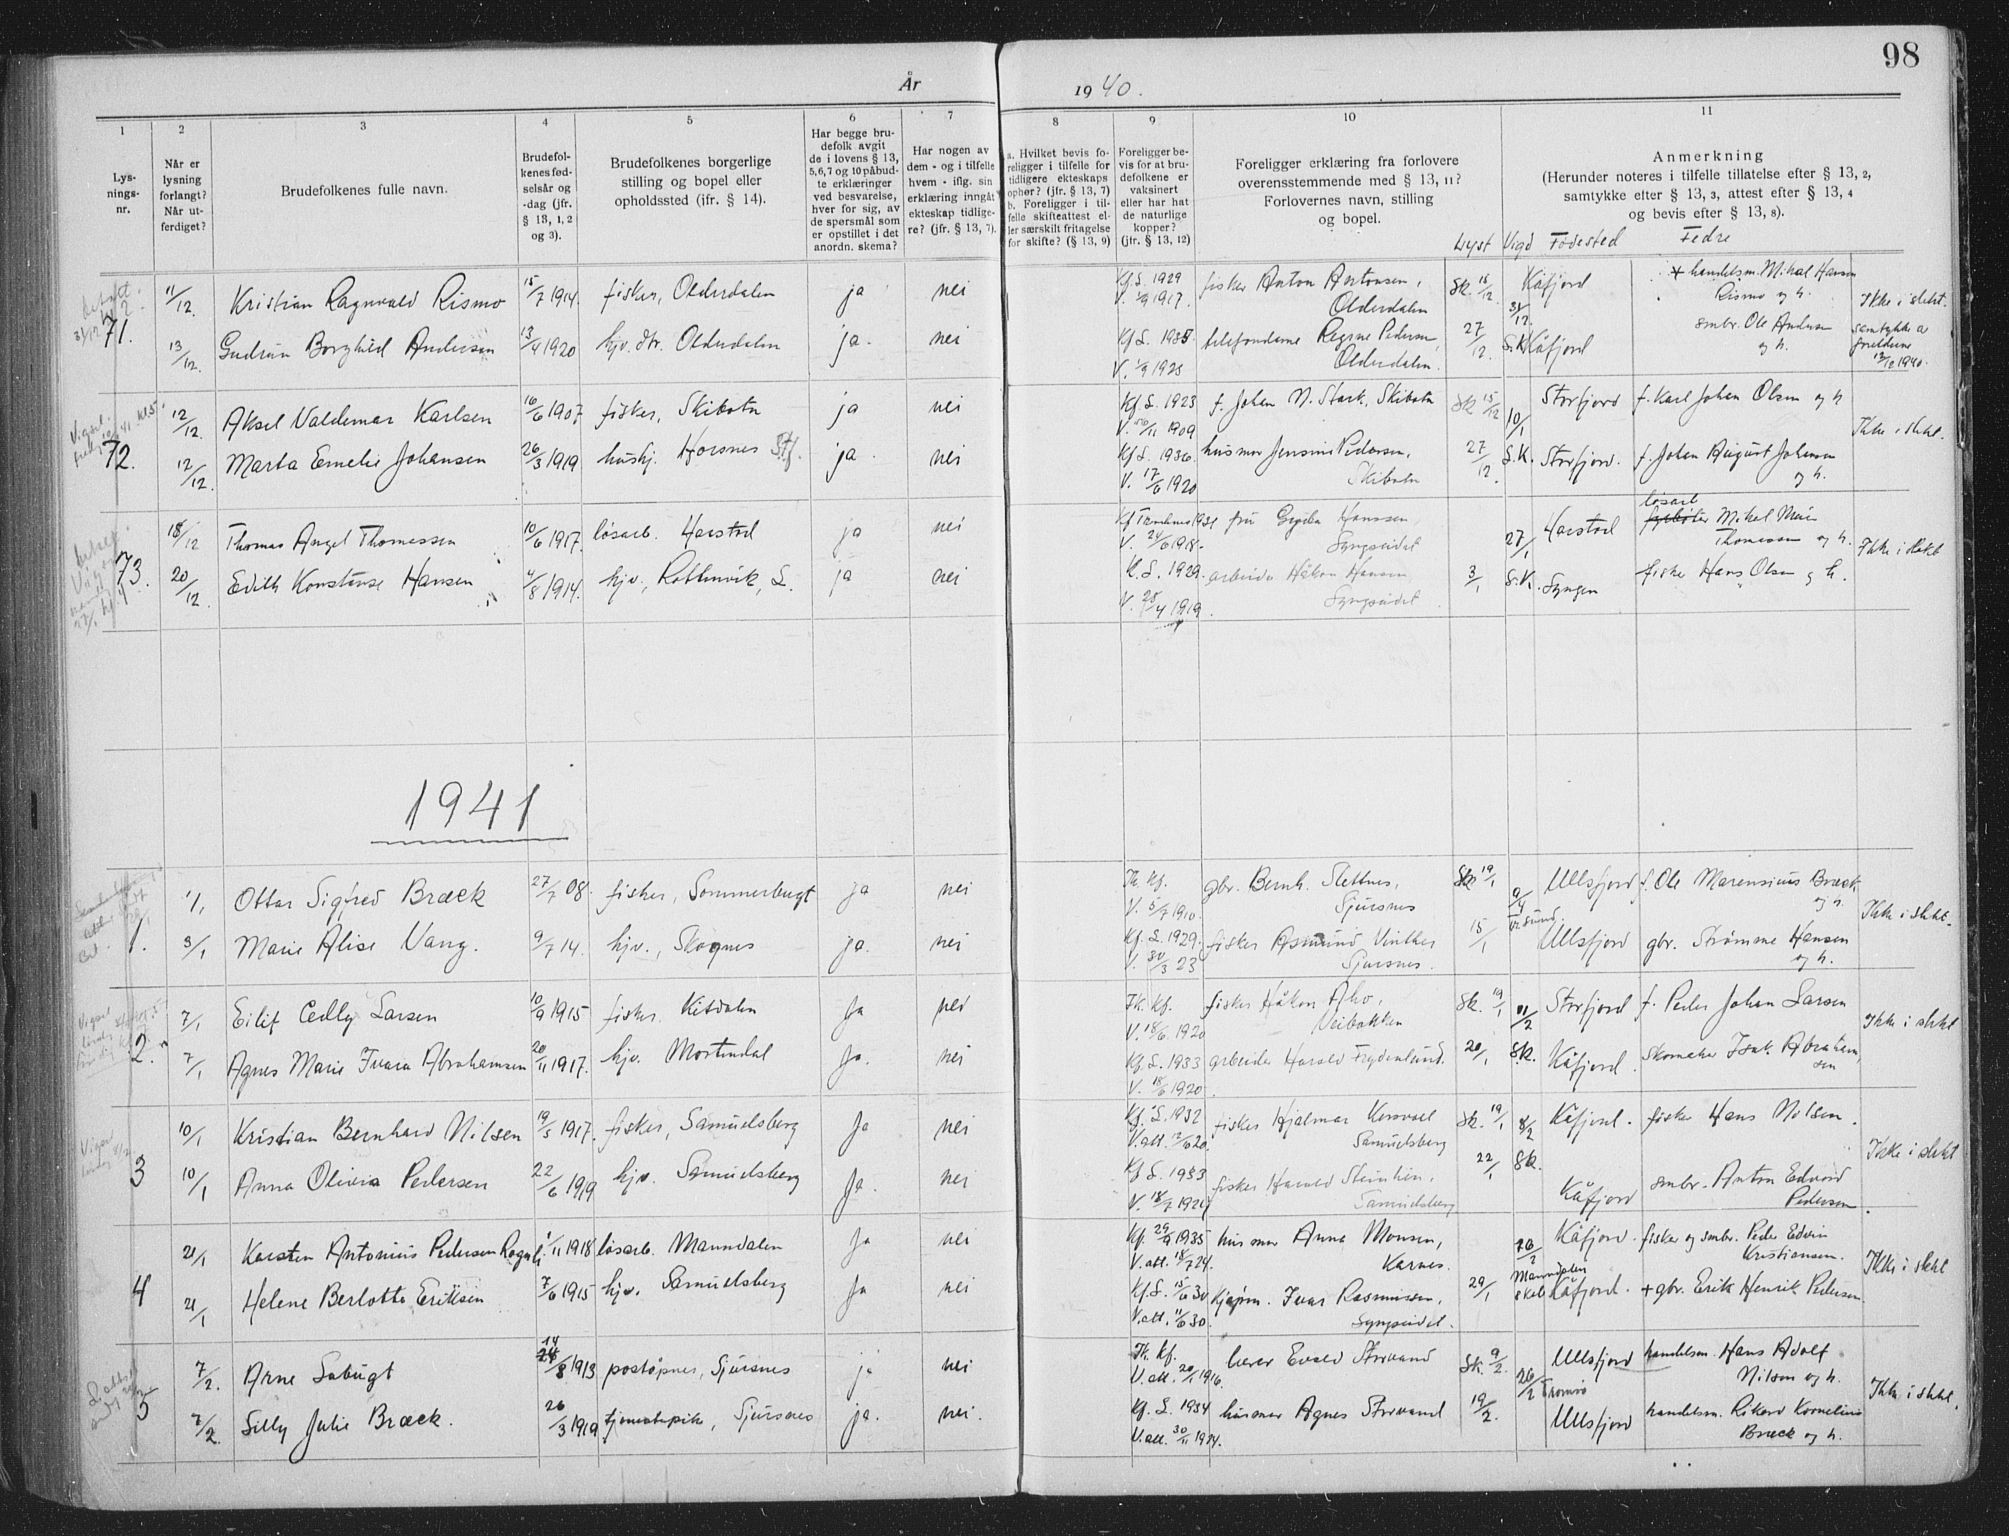 98
År 1940.
1 2 3 4 5 6 7 8 9 10 11
Lys-
nings-
nr.
Når er
lysning
forlangt?
Når ut-
ferdiget?
Brudefolkenes fulle navn.
Brudefol-
kenes fød-
selsår og
-dag (jfr.
§ 13, 1, 2
og 3).
Brudefolkenes borgerlige
stilling og bopel eller
opholdssted (jfr. § 14).
Har begge bru-
defolk avgit
de i lovens § 13,
5,6,7 og 10 påbud-
te erklæringer
ved besvarelse,
hver for sig, av
de spørsmål som
er opstillet i det
anordn. skema?
Har nogen av
dem - og i tilfelle
hvem - iflg. sin
erklæring inngått
ekteskap tidlige-
re? (jfr. § 13, 7).
a. Hvilket bevis fo-
religger i tilfelle for
tidligere ekteskaps
ophør? (jfr. § 13, 7)
b. Foreligger i til-
felle skifteattest el-
ler særskilt fritagelse
for skifte? (§ 13, 9)
Foreligger be-
vis for at bru-
defolkene er
vaksinert
eller har hat
de naturlige
kopper?
(jfr. § 13, 12)
Foreligger erklæring fra forlovere
overensstemmende med § 13, 11?
Forlovernes navn, stilling
og bopel.
Anmerkning
(Herunder noteres i tilfelle tillatelse efter § 13, 2,
samtykke efter § 13, 3, attest efter § 13, 4
og bevis efter § 13, 8).
Lyst Vigd Fødested Fedre
71.
11/12. Kristian Ragnvald Rismo 15/7 1914. fisker, Olderdalen ja nei Kf.L. 1929 fisker Anton Antonsen, Sk. 15/12. Kåfjord + handelsm. Mikal Hansen
V. 1/9 1917. Olderdalen 31/12. Rismo og h. Ikke i slekt.
13/12. Gudrun Borghild Andersen 13/4 1920 hjv. dtr. Olderdalen ja. nei Kf L. 1935. Regine Pedersen, 27/12. S.K. Kåfjord smbr. Ole Andersen
V. 1/9 1925 Olderdalen. og h. samtykke av foreldrene 12/12 1940.
72.
12/12. Aksel Valdemar Karlsen 16/6 1907 fisker, Skibotn ja nei Kf L. 1923 f. Johan N. Stark, Skibotn Sk 15/12 10/1 Storfjord f. Karl Johan Olsen og h
V. 11 1909 Ikke i slekt.
12/12. Marta Emelie Johansen 26/3 1919. hushj. Horsnes Stf. ja. nei Kf L. 1936. husmor Jensine Pedersen, 27/12. S.K. Storfjord. f. Johan August Johansen
V. 17/6 1920 Skibotn og h.
73.
18/12 Thomas Angel Thomassen 10/6 1917. løsarb. Harstad ja nei fru Hanssen, 27/1 Harstad løsarb. Mikal
V. 24/6 1918. Lyngseidet Thomassen og h. Ikke i slekt
20/12. Edith Konstanse Hansen 4/8 1914. hjv., Rottenvik, L. ja nei K.L. 1929. arbeider Håkon Hansen 3/1 S.K. Lyngen fisker Hans Olsen og h.
V. 25/4 1919. Lyngseidet
1941
1.
1/1 Ottar Sigfred Bræck 27/7 08. fisker, Sommerbugt ja nei Th. kf. gbr. Bernh. Slettnes, Sk. 19/1 9/4 Ullsfjord f. Ole Marensius Bræck
V. 5/7 1910. Sjursnes og h. Ikke i slekt.
3/1 Marie Alise Vang. 9/7 14. hjv., Skognes ja. nei Kf. L. 1929. fisker Asmund Vinther 15/1 Ullsfjord gbr. Strømme Hansen
V. 30/3 23 Sjursnes. og h.
2.
7/1 Eilif Cedly Larsen 10/9 1915 fisker Kitdalen Ja nei Th. kf. fisker Håkon Aho, Sk. 19/1 11/2 Storfjord f. Peder Johan Larsen
V. 18/6 1920 Veibakken Ikke i slekt
7/1 Agnes Marie Ivara Abrahamsen 20/11 1917. hjv. Mortendal Ja. nei Kf L. 1933 arbeider Harald Frydenlund. 20/1 Sk. Kåfjord. Skomaker Isak Abraham-
V. 18/6 1920. sen
3
10/1 Kristian Bernhard Nilsen 19/5 1917. fisker, Samuelsberg Ja nei Kf. L. 1932 fisker Hjalmar Sk. 19/1 8/2 Kåfjord. fisker Hans Nilsen.
V.att. 20. Samuelsberg Ikke i slekt
10/1 Anna Olivia Pedersen 22/6 1919 hjv. Samuelsberg Ja. nei Kf L. 1933 fisker Harald 22/1 Sk. Kåfjord smbr. Anton Edvard
V. 18/7 192 Samuelsberg Pedersen.
4
21/1 Karsten Antonius Pedersen 1/11 1918 løsarb. Manndalen Ja nei Kf. 29/9 1935 husmor Anna Monsen, 26/2 Kåfjord. fisker og smbr. Peder Edvin
V.att. 18/7 24. Karnes. Manndalen Kristiansen. Ikke i slekt
21/1 Helene Berlotte Eriksen 7/6 1915 hjv. Samuelsberg Ja nei Kf.L. 15/6 30 Kjøpm. Ivar Rasmussen, 29/1 Kåfjord. + gbr. Erik Henrik Pedersen.
V.att. 11/6 30. Lyngseidet.
5
7/2. Arne Sabugt 14/8 1913 postopner, Sjursnes ja nei Th. kf. lærer Evald Storvand Sk. 9/2. 26/2 Ullsfjord handelsm. Hans Adolf
V.att. 20/1 1916. Tromsø Nilsen og h. Ikke i slekt.
7/2. Silly Julie Bræck. 26/3 1919 Sjursnes ja. nei. Kf. L. 1934 husmor Agnes Storvand 19/2. Ullsfjord handelsm. Rikard Kornelius
V.att. 30/11 1924. Bræck og h.